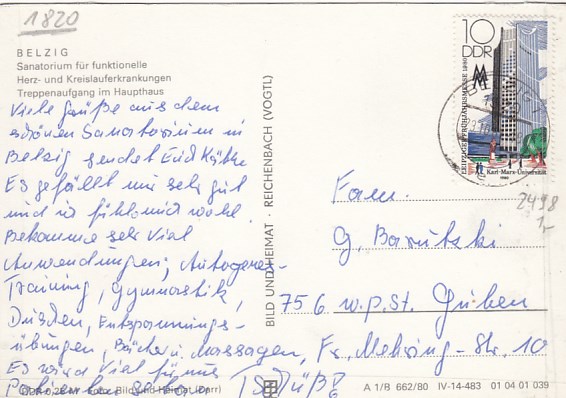 1820
BELZIG
Sanatorium für funktionelle
Herz- und Kreislauferkrankungen
Treppenaufgang im Haupthaus
Viele Grüße aus dem
schönen Sanatorium in
Belzig sendet Euch Käthe
Es gefällt mir sehr gut
und ich fühle mich wohl.
Bekomme sehr viel
Anwendungen; Autogenes-
Training, Gymnastik,
Duschen, Entspannungs-
übungen, Bäder u. Massagen,
Es wird viel für uns
Patienten
BILD UND HEIMAT · REICHENBACH (VOGTL)
10
DDR
MM
LEIPZIGER FRÜHJAHRSMESSE 1980
Karl-Marx-Universität
1980
2498
1,-
Fam.
G. Barutzki
756 W.P.St. Guben
Fr. Mehring-Str. 10
DDR 0,28 M Foto: Bild und Heimat (Darr)
A 1/B 662/80 IV-14-483 01 04 01 039